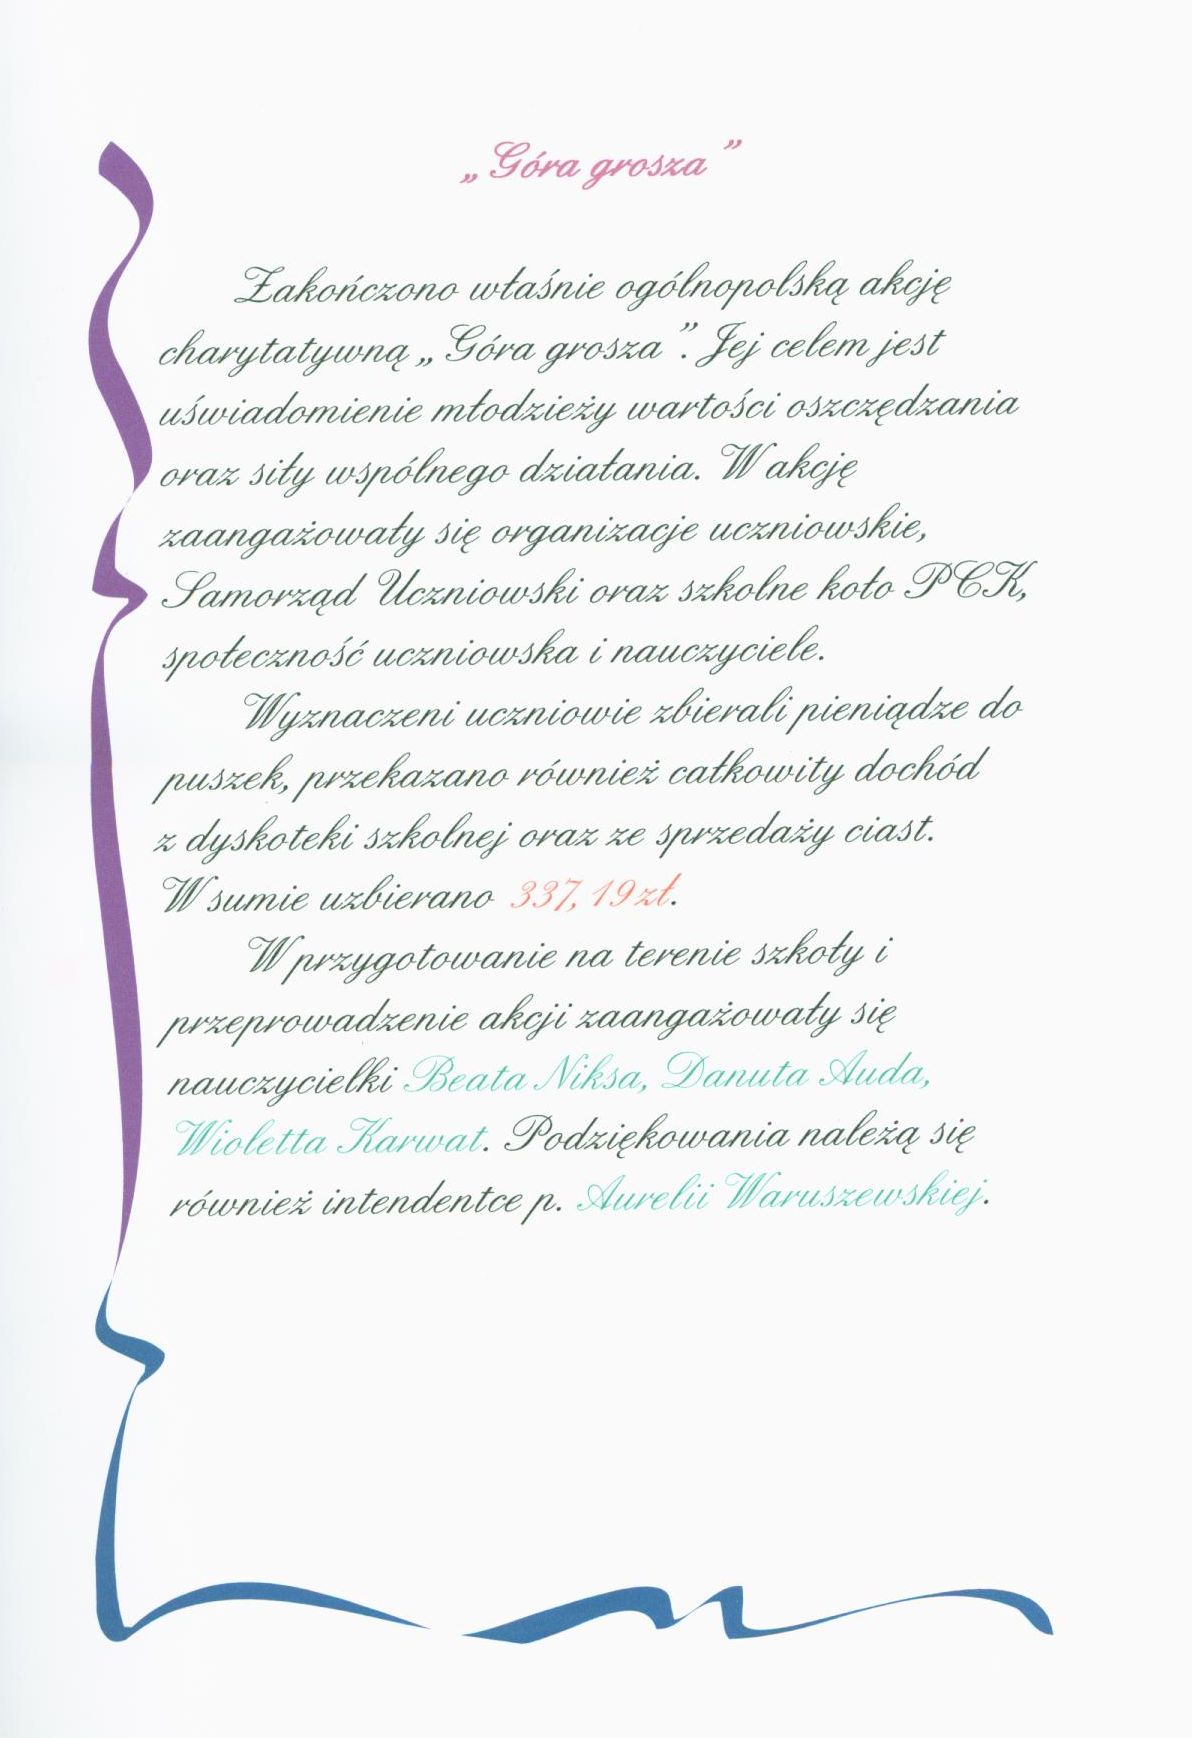 „Góra grosza”
Zakończono właśnie ogólnopolską akcję
charytatywną „Góra grosza”. Jej celem jest
uświadomienie młodzieży wartości oszczędzania
oraz siły wspólnego działania. W akcję
zaangażowały się organizacje uczniowskie,
Samorząd Uczniowski oraz szkolne koło PCK,
społeczność uczniowska i nauczyciele.
Wyznaczeni uczniowie zbierali pieniądze do
puszek, przekazano również całkowity dochód
z dyskoteki szkolnej oraz ze sprzedaży ciast.
W sumie uzbierano 337,19 zł.
W przygotowanie na terenie szkoły i
przeprowadzenie akcji zaangażowały się
nauczycielki Beata Niksa, Danuta Auda,
Wioletta Karwat. Podziękowania należą się
również intendentce p. Aurelii Waruszewskiej.